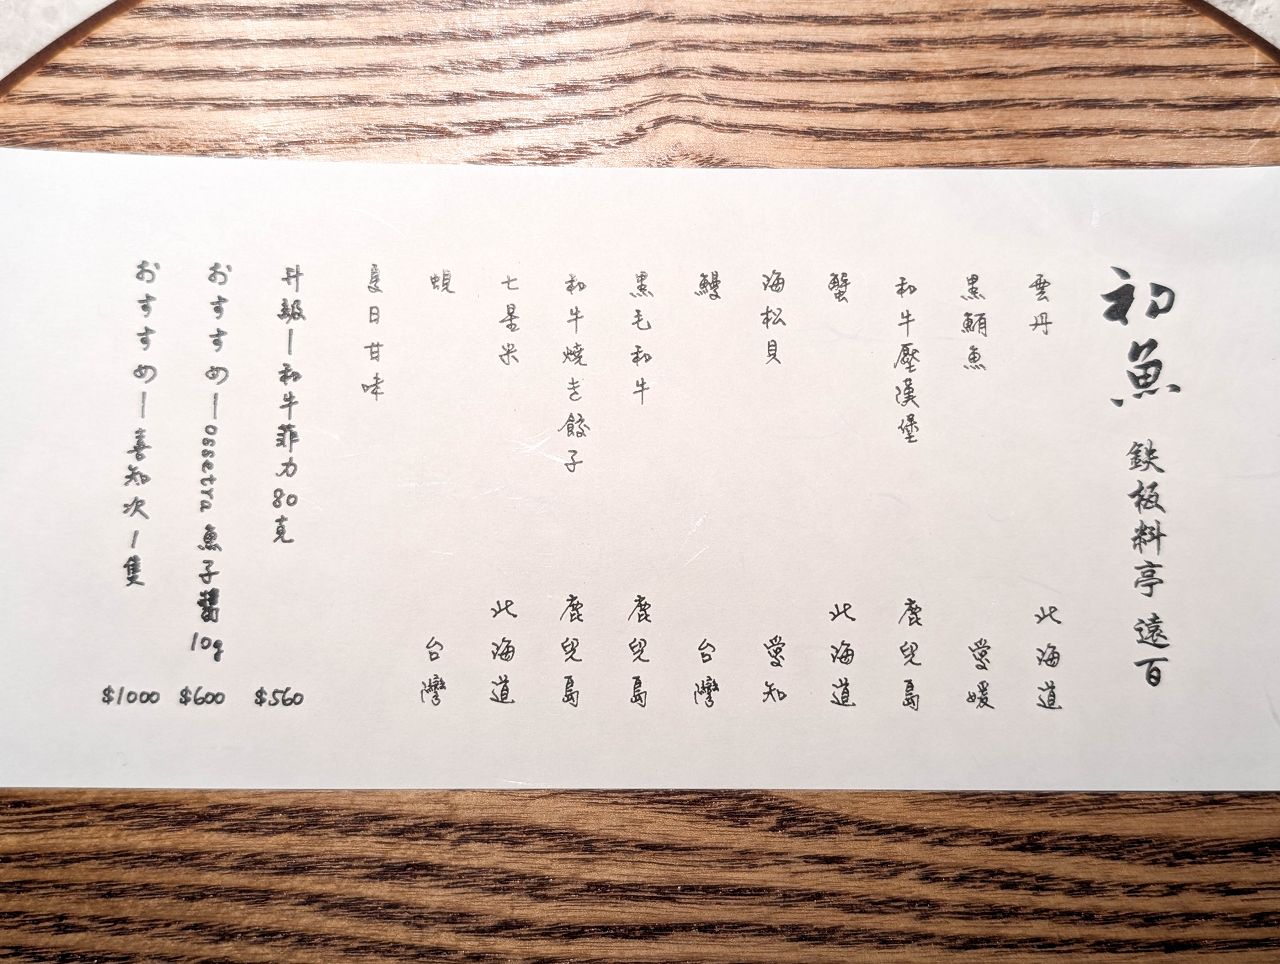 初魚 鉄板料亭 遠百
雲丹 北海道
黒鮪魚 愛媛
和牛壓漢堡 鹿兒島
蟹 北海道
海松貝 愛知
鰻 台灣
黒毛和牛 鹿兒島
和牛焼き餃子 鹿兒島
七星米 北海道
蜆 台灣
夏日甘味
升級—和牛菲力80克 $560
おすすめ—ossetra魚子醬10g $600
おすすめ—喜知次1隻 $1000